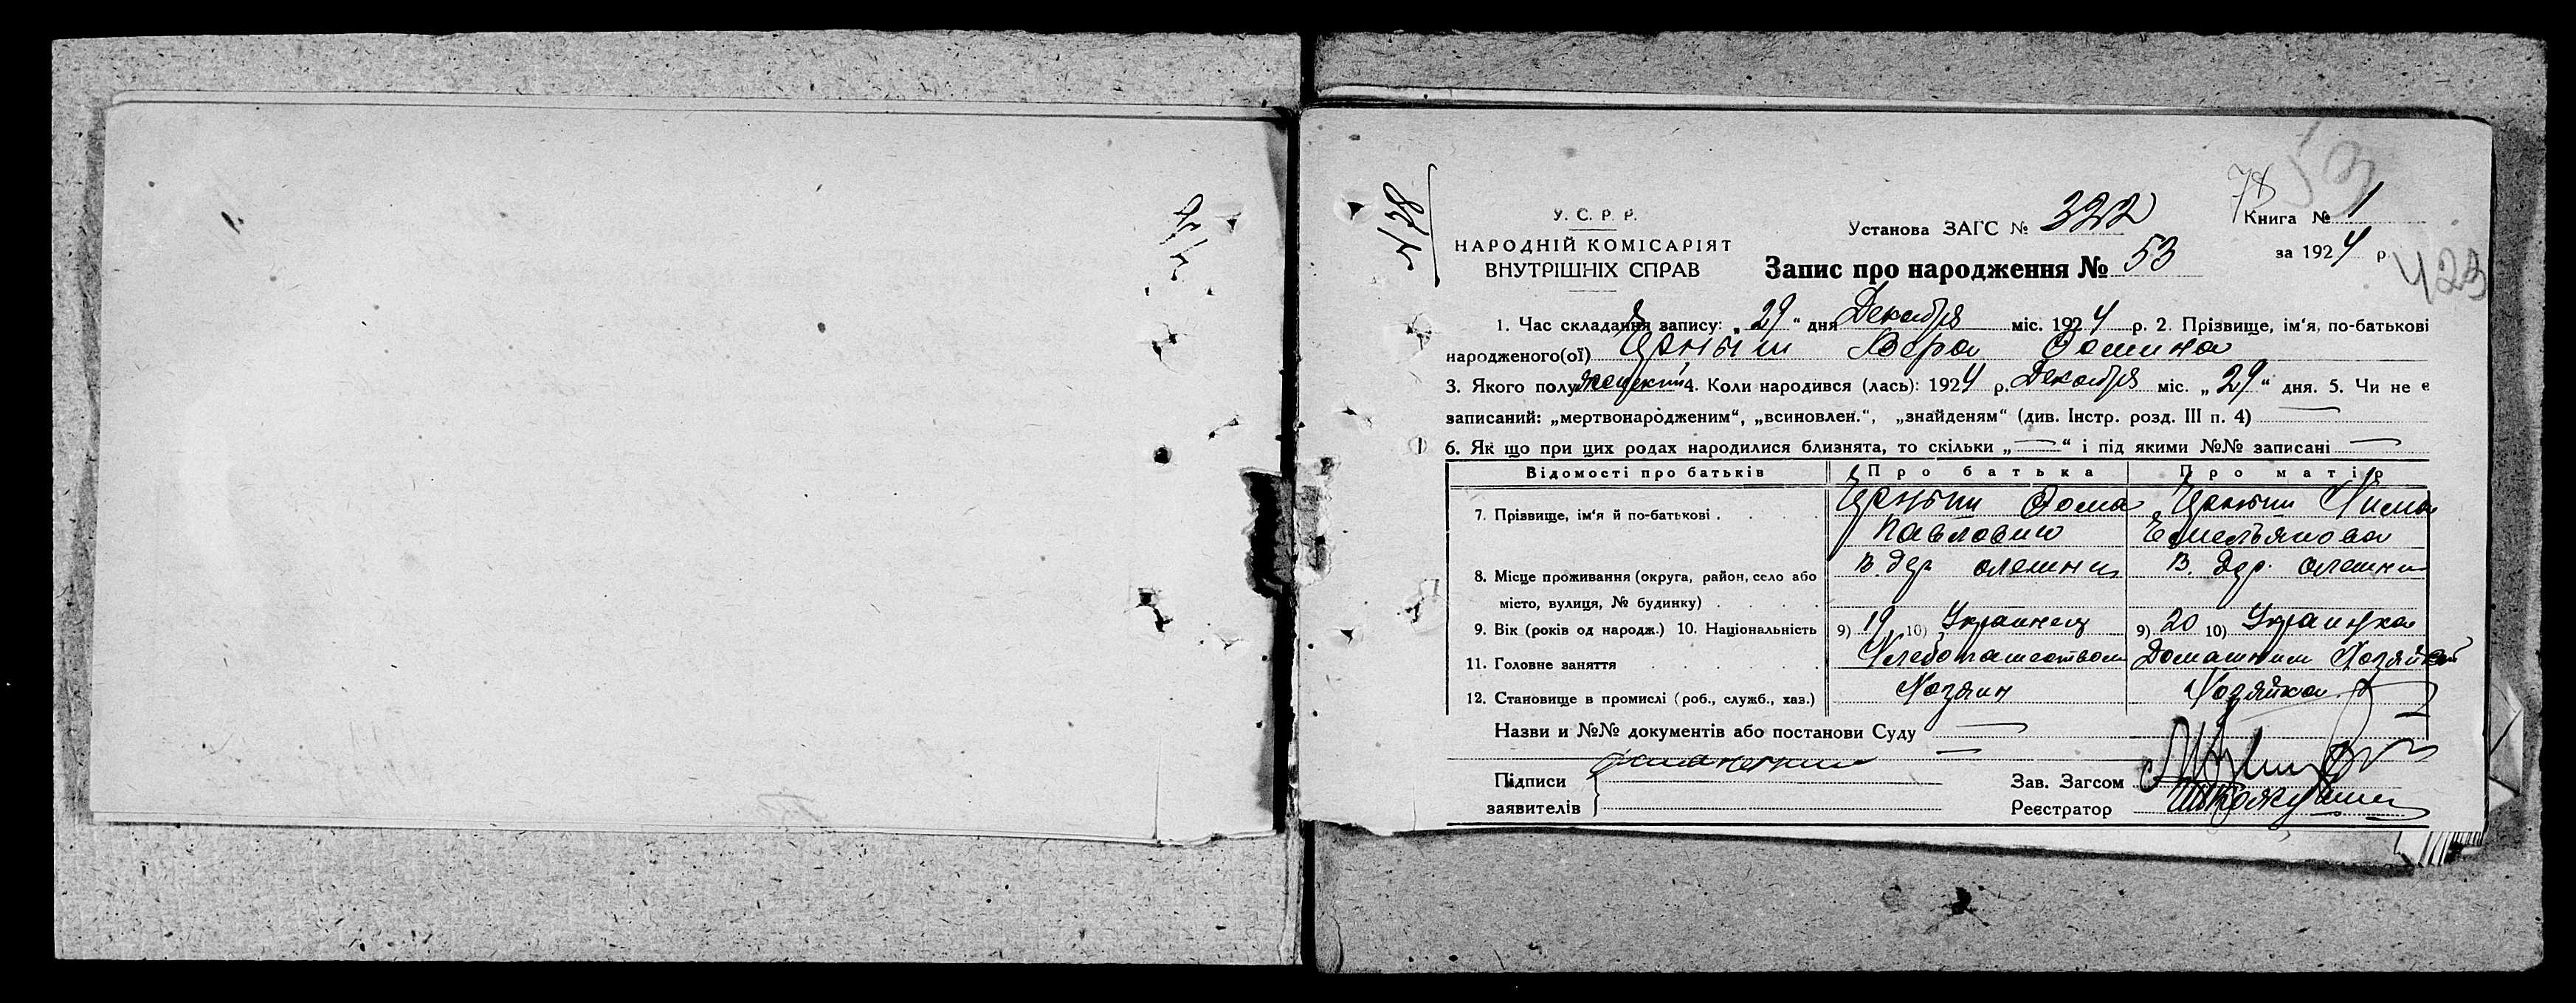 78 53
У. С. Р. Р.
НАРОДНІЙ КОМІСАРІЯТ
ВНУТРІШНІХ СПРАВ
Установа ЗАГС № 322
Книга № 1
за 1924 р.
423
Запис про народження № 53
1. Час складання запису: „29“ дня Декабря міс. 1924 р. 2. Прізвище, ім‘я, по-батькові
народженого(ої) Вера Фомина
3. Якого полу женский 4. Коли народився (лась): 1924 р. Декабря міс. „29“ дня. 5. Чи не є
записаний: „мертвонародженим“, „всиновлен.“, „знайденям“ (див. Інстр. розд. III п. 4)
6. Як що при цих родах народилися близнята, то скільки „—“ і під якими №№ записані —
Відомості про батьків Про батька Про матір
7. Прізвище, ім‘я й по-батькові . . . . Фома
Павлович Емельянова
8. Місце проживання (округа, район, село або В. дер. В. дер.
місто, вулиця, № будинку) . . . .
9. Вік (років од народж.) 10. Національність 9) 19 10) Украинец 9) 20 10) Украинка
11. Головне заняття . . . . . Хлебопашеством Домашним Хозяйкой
12. Становище в промислі (роб., служб., хаз.) Хозяин Хозяйка
Назви и №№ документів або постанови Суду —
Підписи
заявителів
Зав. Загсом
Реєстратор